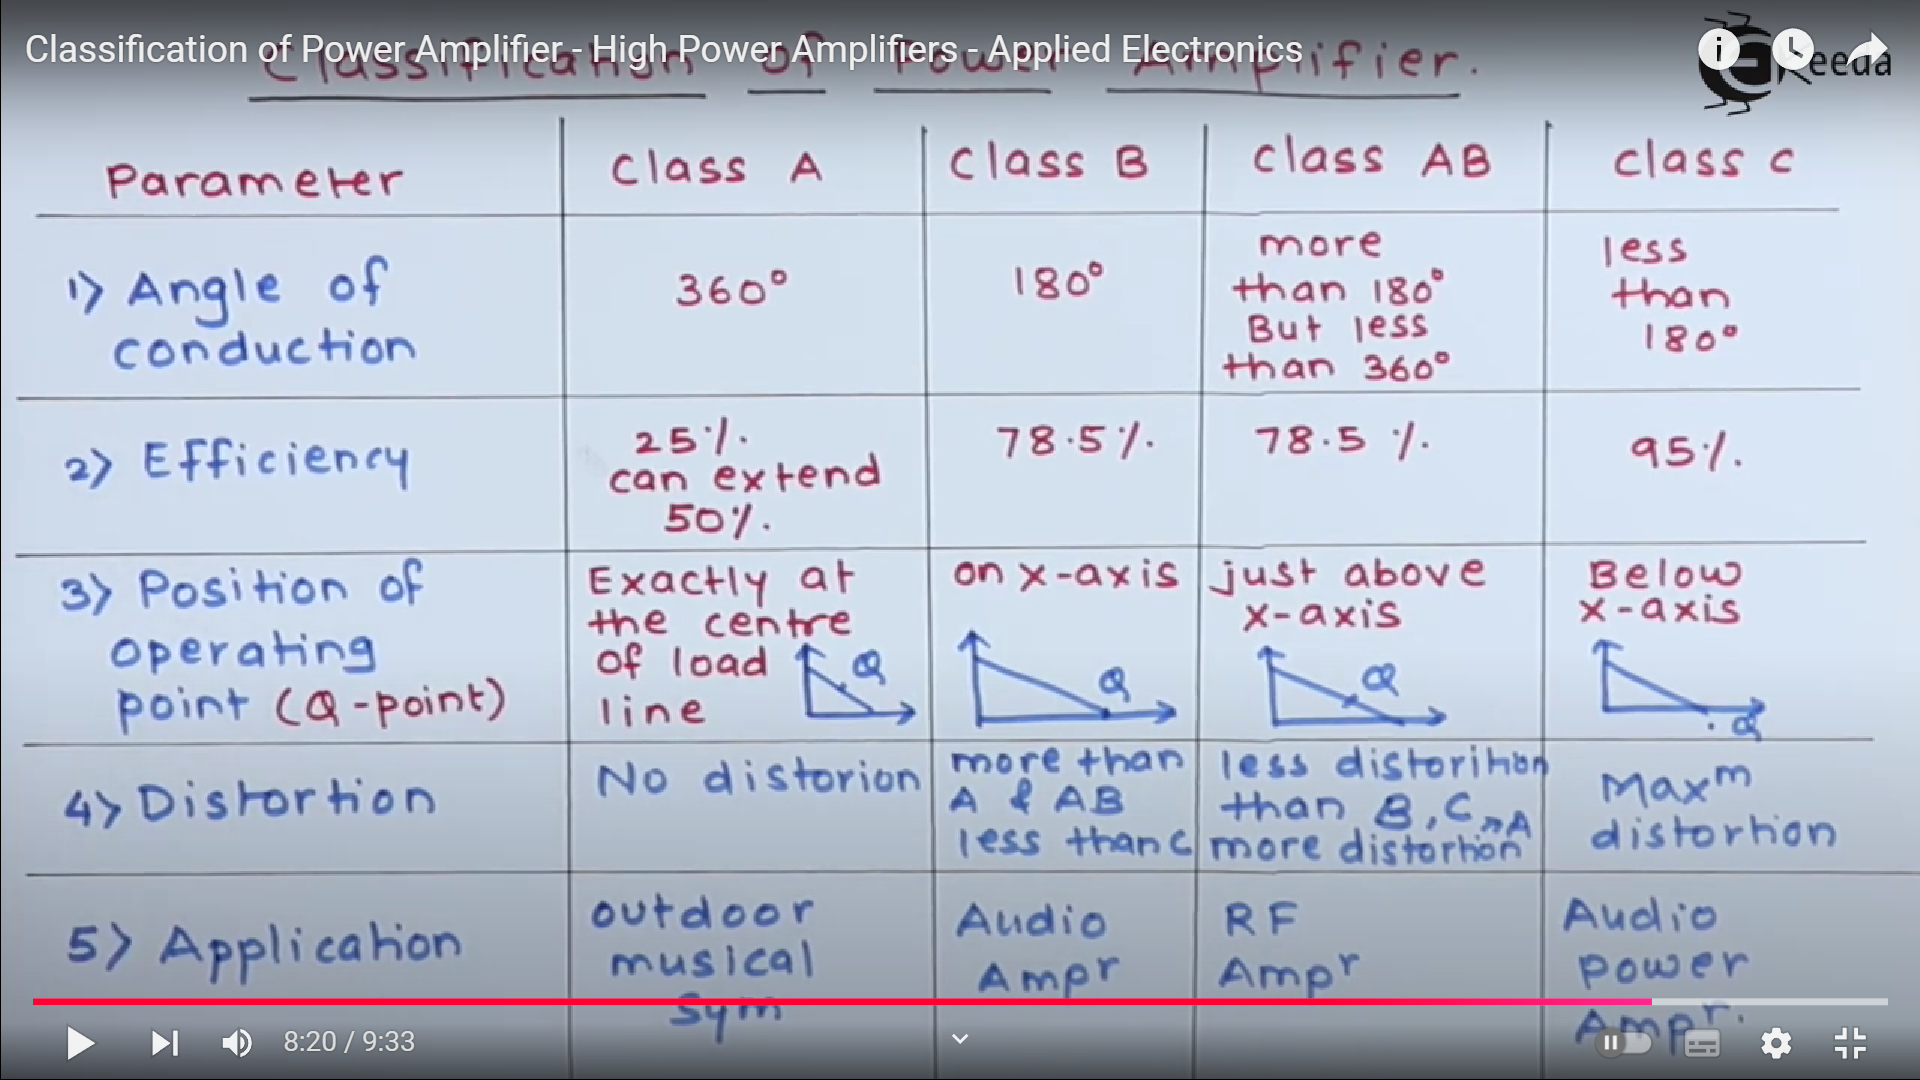 Classification of Power Amplifier - High Power Amplifiers - Applied Electronics
Classification of Power Amplifier.
eKeeda
Parameter
Class A
Class B
Class AB
Class C
1) Angle of
conduction
360°
180°
more
than 180°
But less
than 360°
less
than
180°
2) Efficiency
25%.
can extend
50%.
78.5%.
78.5 %.
95%.
3) Position of
operating
point (Q-point)
Exactly at
the centre
of load
line
Q
on x-axis
Q
just above
x-axis
Q
Below
x-axis
Q
4) Distortion
No distorion
more than
A & AB
less than C
less distorition
than B, C, A
more distortion
Maxm
distortion
5) Application
outdoor
musical
sym
Audio
Ampr
RF
Ampr
Audio
Power
Ampr.
8:20 / 9:33